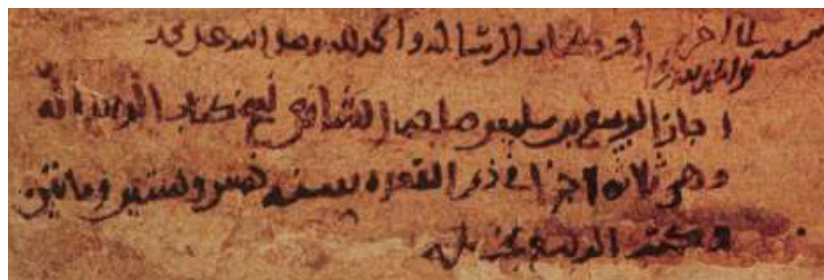 اخر كتاب الرسالة والحمد لله وصلى الله على محمد
اجاز الربيع بن سليمن صاحب الشافعي نسخ كتاب الرسالة
وهي ثلاثة اجزا في ذي القعدة سنة خمس وستين ومائتين
وكتب الربيع بخطه